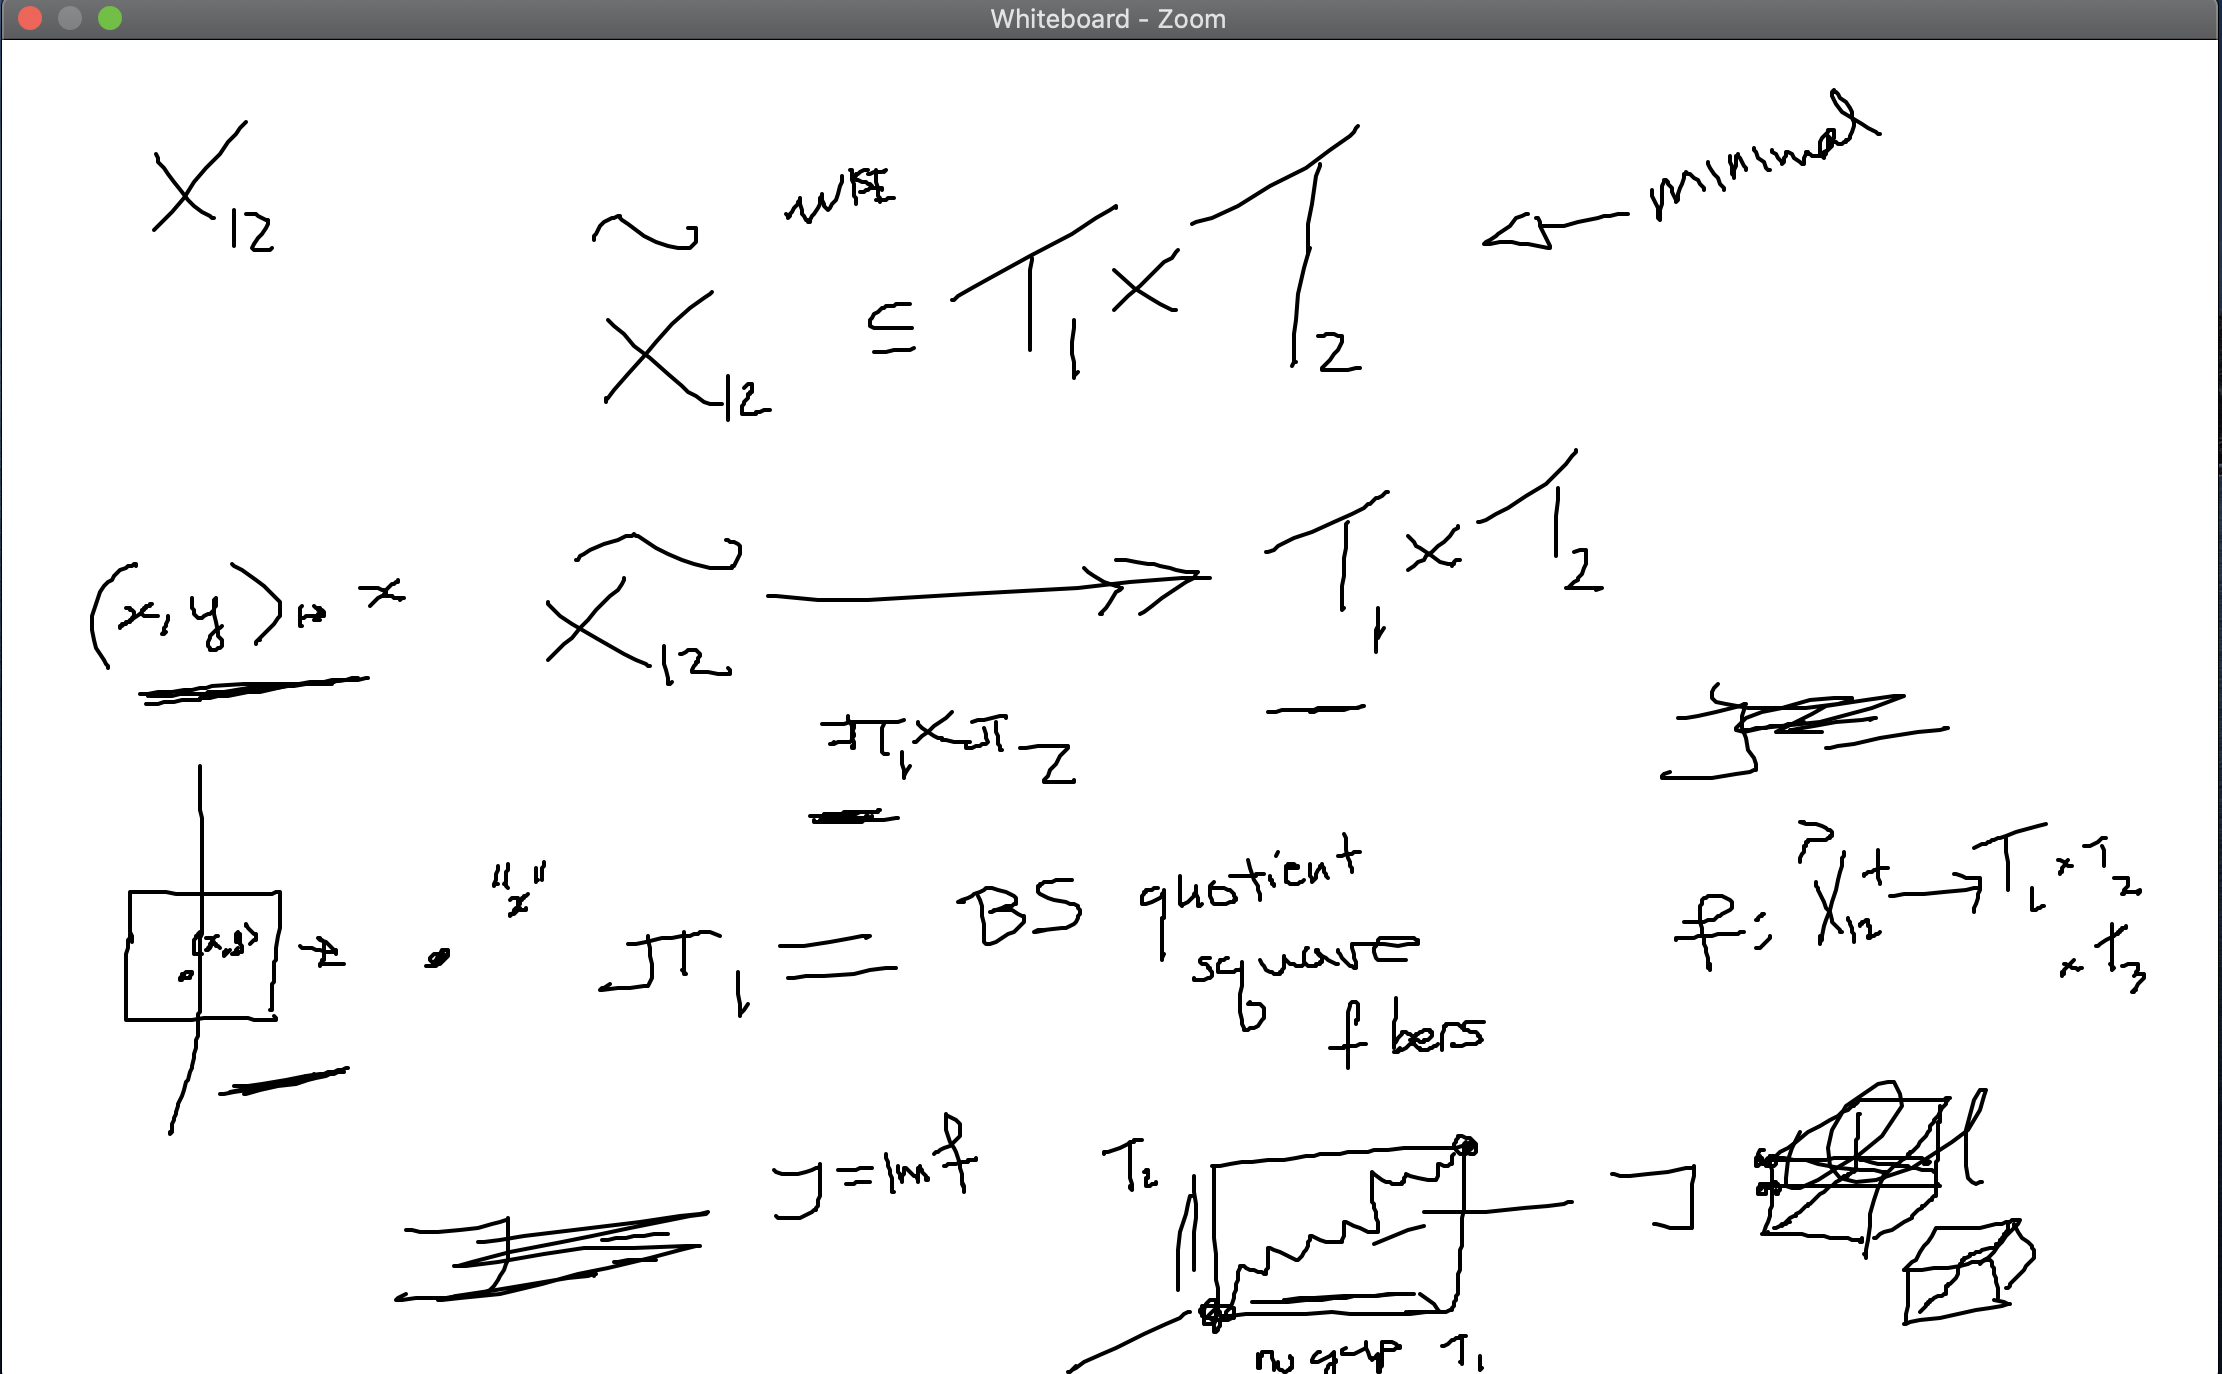 Whiteboard - Zoom
X₁₂
X̃₁₂ ⊆ T₁ × T₂
minimal
(x, y) ↦ x
X̃₁₂ ↠ T₁ × T₂
π₁ × π₂
(x,y) → • "x"
π₁ = BS quotient
square
fibers
f: X₁₂⁺ → T₁ × T₂
× T₃
J = Im f
T₂
J
no gap T₁